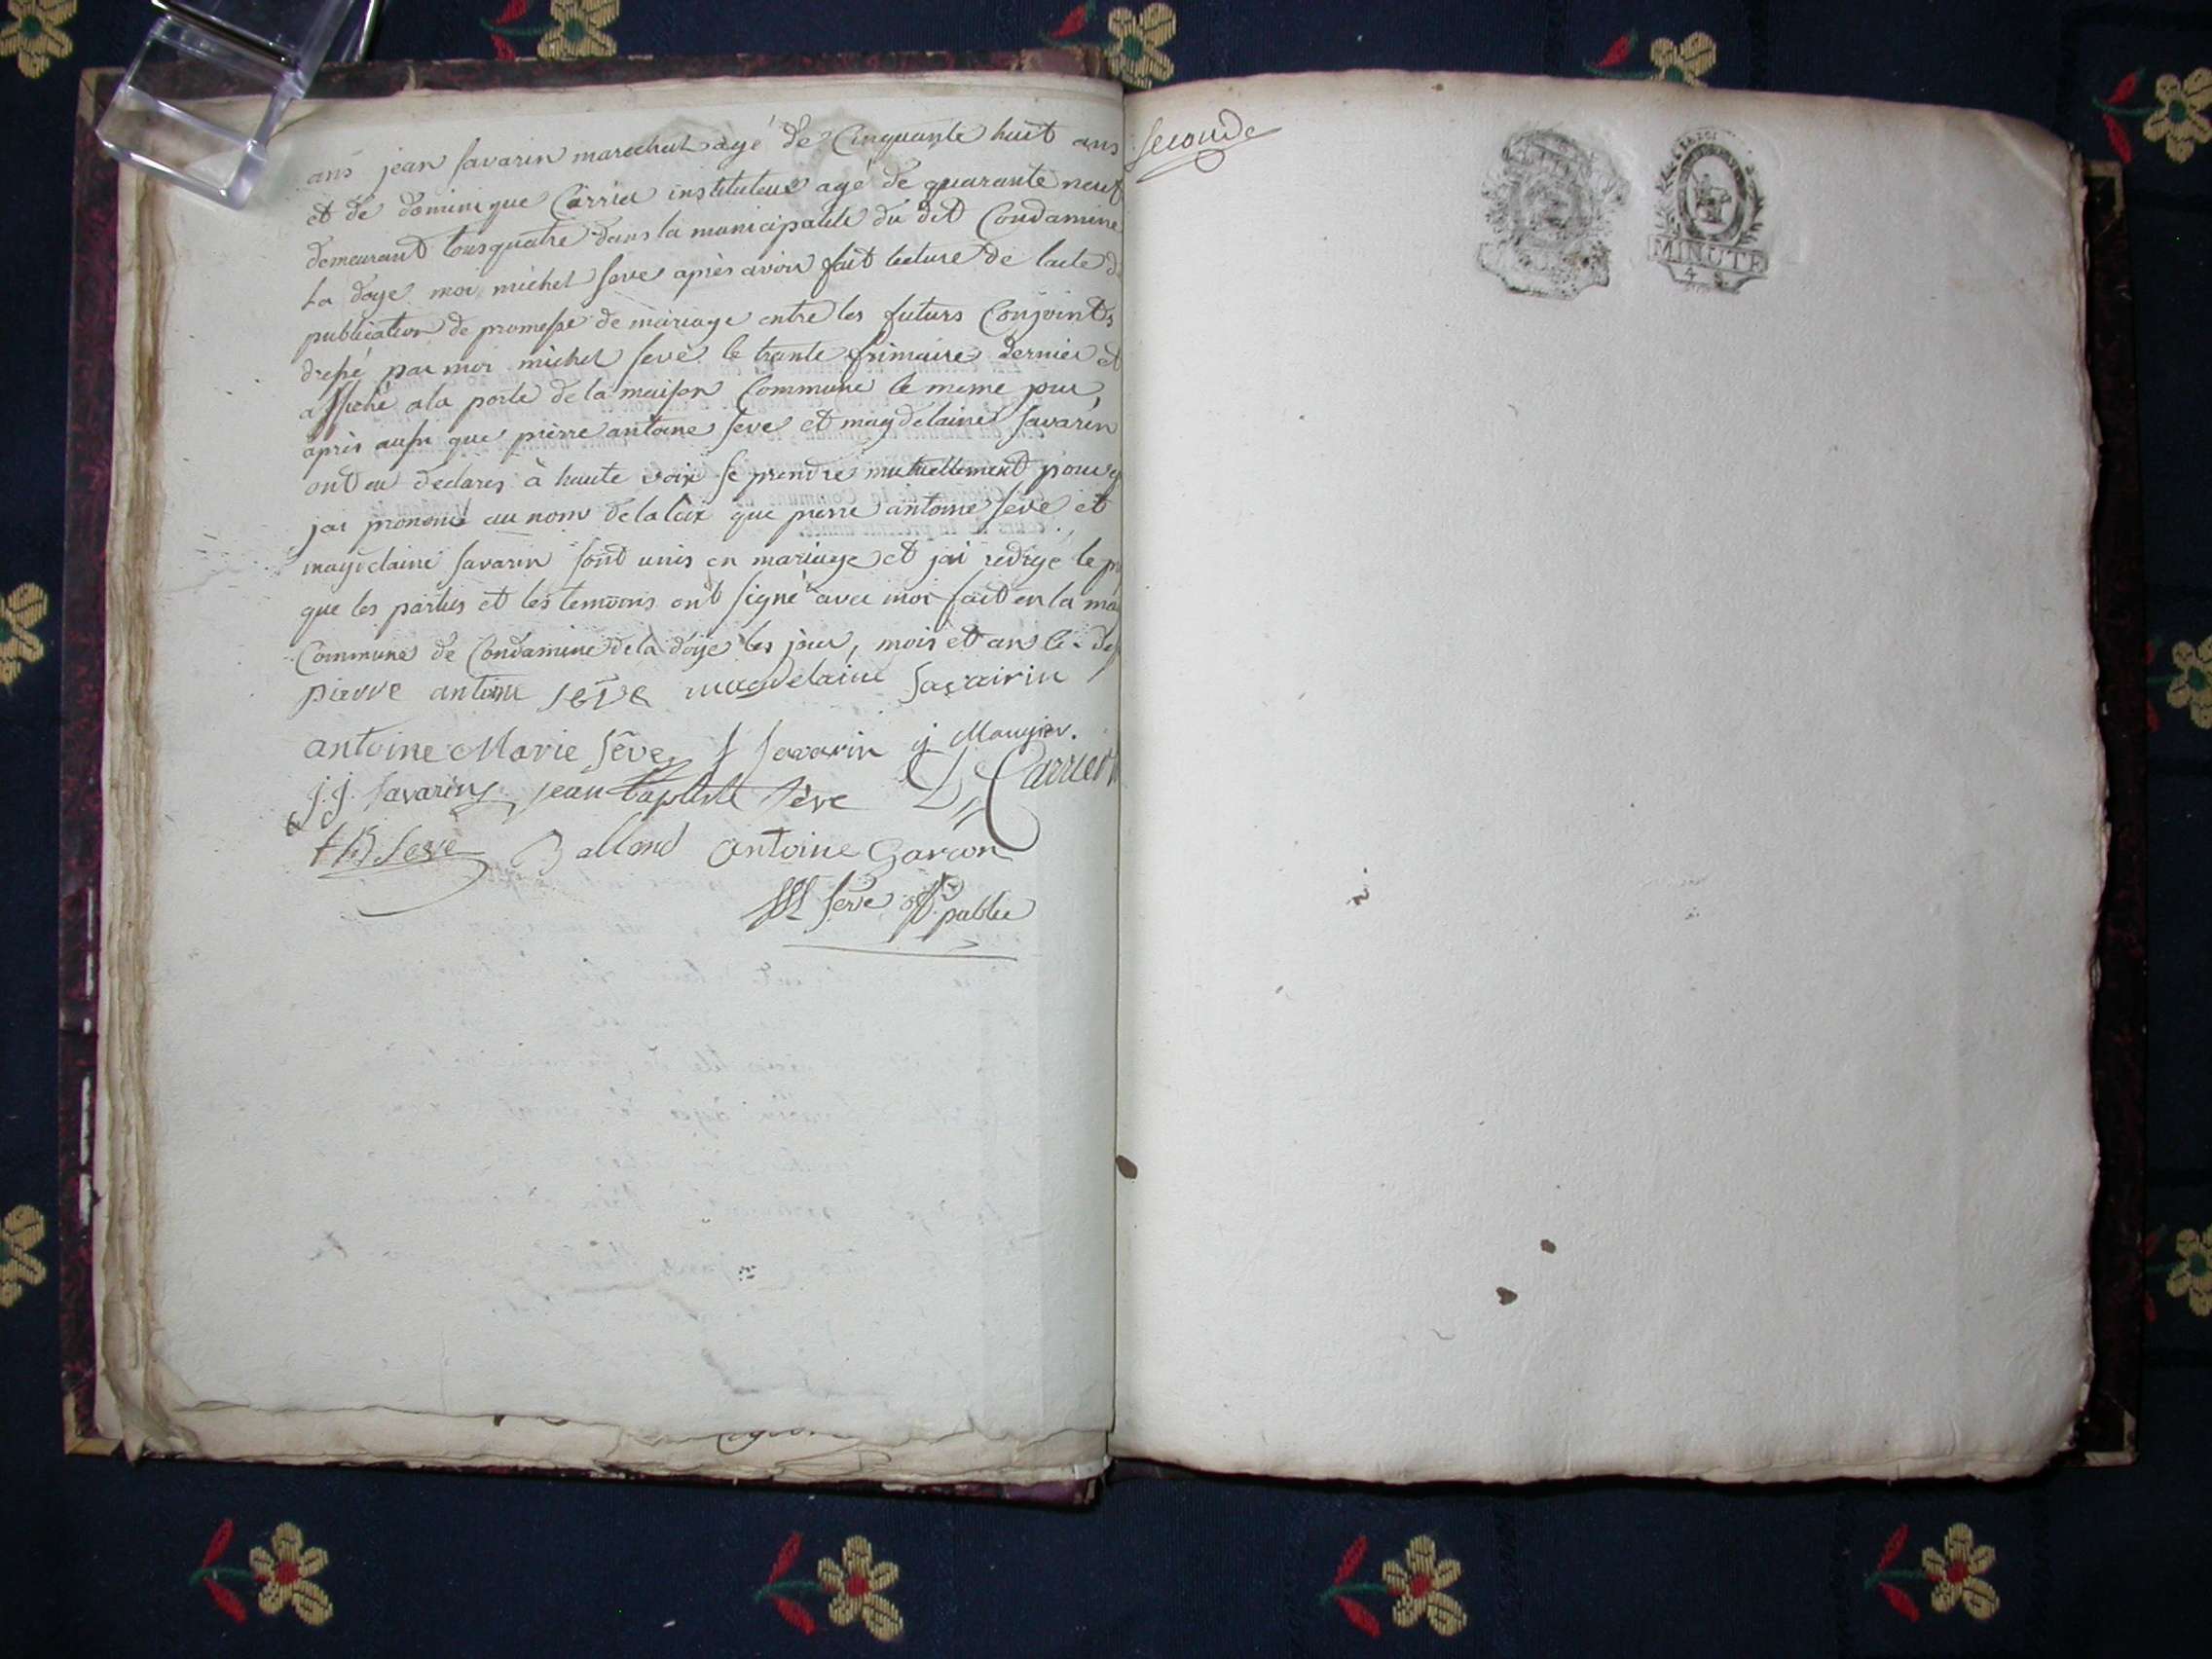 ans jean savarin marechal agé de Cinquante huit ans
et de dominique Carrier instituteur agé de quarante neuf
demeurant tous quatre dans la municipalité du dit Condamine
La doye moi michel seve après avoir fait lecture de l'acte de
publication de promesse de mariage entre les futurs Conjoints
dressé par moi michel seve le trante frimaire dernier et
affiché a la porte de la maison Commune le meme jour,
après aussi que pierre antoine seve et magdelaine savarin
ont eu declarés à haute voix se prendre mutuellement pour
jai prononcé au nom de la loix que pierre antoine seve et
magdelaine savarin sont unis en mariage et jai redigé le
que les parties et les temoins ont signé avec moi fait en la
Commune de Condamine de la doye les jour, mois et an
pierre antoine seve magdelaine savairin
antoine Marie sêve J savarin j Maugier.
J.J. savarin jean baptiste sève D. Carrier
J B Seve Balland antoine Garcon
M seve off. public
seconde
MINUTE